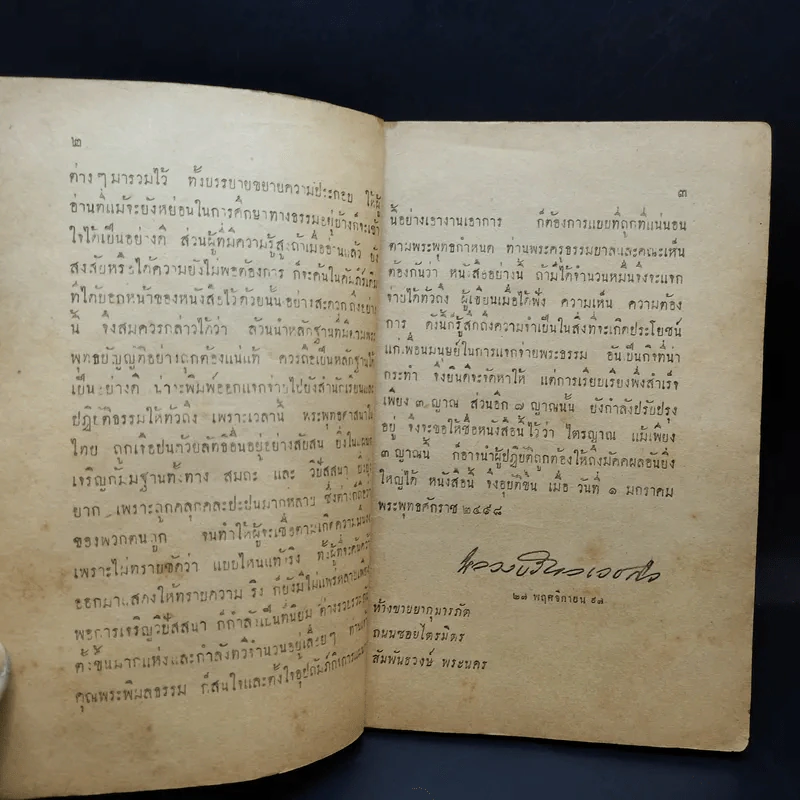 ๒
ต่างๆ มารวมไว้ ทั้งบรรยายขยายความประกอบ ให้ผู้
อ่านที่แม้จะยังหย่อนในการศึกษาทางธรรมอยู่บ้างก็จะเข้า
ใจได้เป็นอย่างดี ส่วนผู้ที่มีความรู้สูงถ้าเมื่ออ่านแล้ว ยัง
สงสัยหรือได้ความยังไม่พอต้องการ ก็จะค้นในคัมภีร์เดิม
ที่ได้บอกหน้าของหนังสือไว้ด้วยนั้นอย่างสะดวก ถึงอย่าง
นี้ จึงสมควรกล่าวได้ว่า ล้วนนำหลักฐานที่มีตามพระ
พุทธบัญญัติอย่างถูกต้องแน่แท้ ควรถือเป็นหลักฐานได้
เป็นอย่างดี น่าจะพิมพ์ออกแจกจ่ายไปยังสำนักเรียนและ
ปฏิบัติธรรมให้ทั่วถึง เพราะเวลานี้ พระพุทธศาสนาใน
ไทย ถูกเจือปนด้วยลัทธิอื่นอยู่อย่างสับสน ยิ่งในแผนก
เจริญกัมมฐานทั้งทาง สมถะ และ วิปัสสนา ยิ่งยุ่ง
ยาก เพราะถูกคลุกคละปะปนมากหลาย ซึ่งต่างถือว่า
ของพวกตนถูก จนทำให้ผู้จะเชื่อตามเกิดความ
เพราะไม่ทราบชัดว่า แบบไหนแท้จริง ทั้งผู้ที่จะค้นคว้า
ออกมาแสดงให้ทราบความ จริง ก็ยังมีไม่แพร่หลายเพียง
พอการเจริญวิปัสสนา ก็กำลังเป็นที่นิยม ต่างรวบรวม
ตั้งขึ้นมากแห่งและกำลังทวีจำนวนอยู่เสื่อยๆ ท่านเจ้า
คุณพระพิมลธรรม ก็สนใจและตั้งใจอุปถัมภ์กิจการ
๓
นี้อย่างเอางานเอาการ ก็ต้องการแบบที่ถูกที่แน่นอน
ตามพระพุทธกำหนด ท่านพระครูธรรมยาลนและคณะเห็น
ต้องกันว่า หนังสืออย่างนี้ ถ้ามีได้จำนวนหมื่นจึงจะแจก
จ่ายได้ทั่วถึง ผู้เขียนเมื่อได้ฟัง ความเห็น ความต้อง
การ ดังนี้ก็รู้สึกถึงความจำเป็นในสิ่งที่จะเกิดประโยชน์
แก่เพื่อนมนุษย์ในการแจกจ่ายพระธรรม อันเป็นกิจที่น่า
กระทำ จึงยินดีจะจัดหาให้ แต่การเรียบเรียงพึ่งสำเร็จ
เพียง ๓ ญาณ ส่วนอีก ๗ ญาณนั้น ยังกำลังปรับปรุง
อยู่ จึงจะขอให้ชื่อหนังสือนี้ไว้ว่า ไตรญาณ แม้เพียง
๓ ญาณนี้ ก็อาจนำผู้ปฏิบัติที่ถูกต้องให้ถึงมัคคผลอันยิ่ง
ใหญ่ได้ หนังสือนี้ จึงอุบัติขึ้น เมื่อ วันที่ ๑ มกราคม
พระพุทธศักราช ๒๔๙๘
๒๗ พฤศจิกายน ๙๗
ห้างขายยากุมารภัต
ถนนซอยไตรมิตร
สัมพันธวงษ์ พระนคร